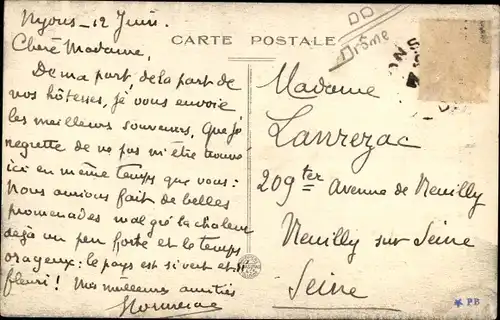 Nyons – 12 Juin.
Chère Madame,
De ma part de la part de
vos hôtesses, je vous envoie
les meilleurs souvenirs. Que je
regrette de ne pas m'être trouvée
ici en même temps que vous :
Nous aurions fait de belles
promenades malgré la chaleur
déjà un peu forte et le temps
orageux : le pays est si vert et si
fleuri ! Mes meilleures amitiés
CARTE POSTALE
Drôme
Madame
Lanrezac
209ter Avenue de Neuilly
Neuilly sur Seine
Seine
PB